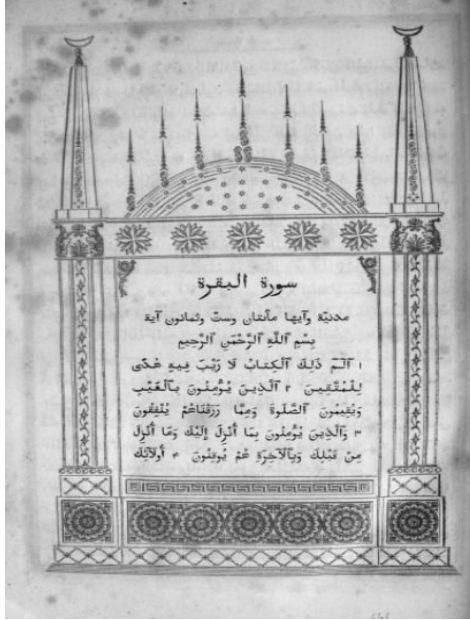 سورة البقرة
مدنيّة وآيها مائتان وستّ وثمانون آية
بِسْمِ ٱللَّهِ ٱلرَّحْمَٰنِ ٱلرَّحِيمِ
١ ٱلٓمٓ ذَلِكَ ٱلْكِتَابُ لَا رَيْبَ فِيهِ هُدًى
لِلْمُتَّقِينَ ٢ ٱلَّذِينَ يُؤْمِنُونَ بِٱلْغَيْبِ
وَيُقِيمُونَ ٱلصَّلَوةَ وَمِمَّا رَزَقْنَاهُمْ يُنْفِقُونَ
٣ وَٱلَّذِينَ يُؤْمِنُونَ بِمَا أُنْزِلَ إِلَيْكَ وَمَا أُنْزِلَ
مِنْ قَبْلِكَ وَبِٱلْآخِرَةِ هُمْ يُوقِنُونَ ۴ أُولَآئِكَ